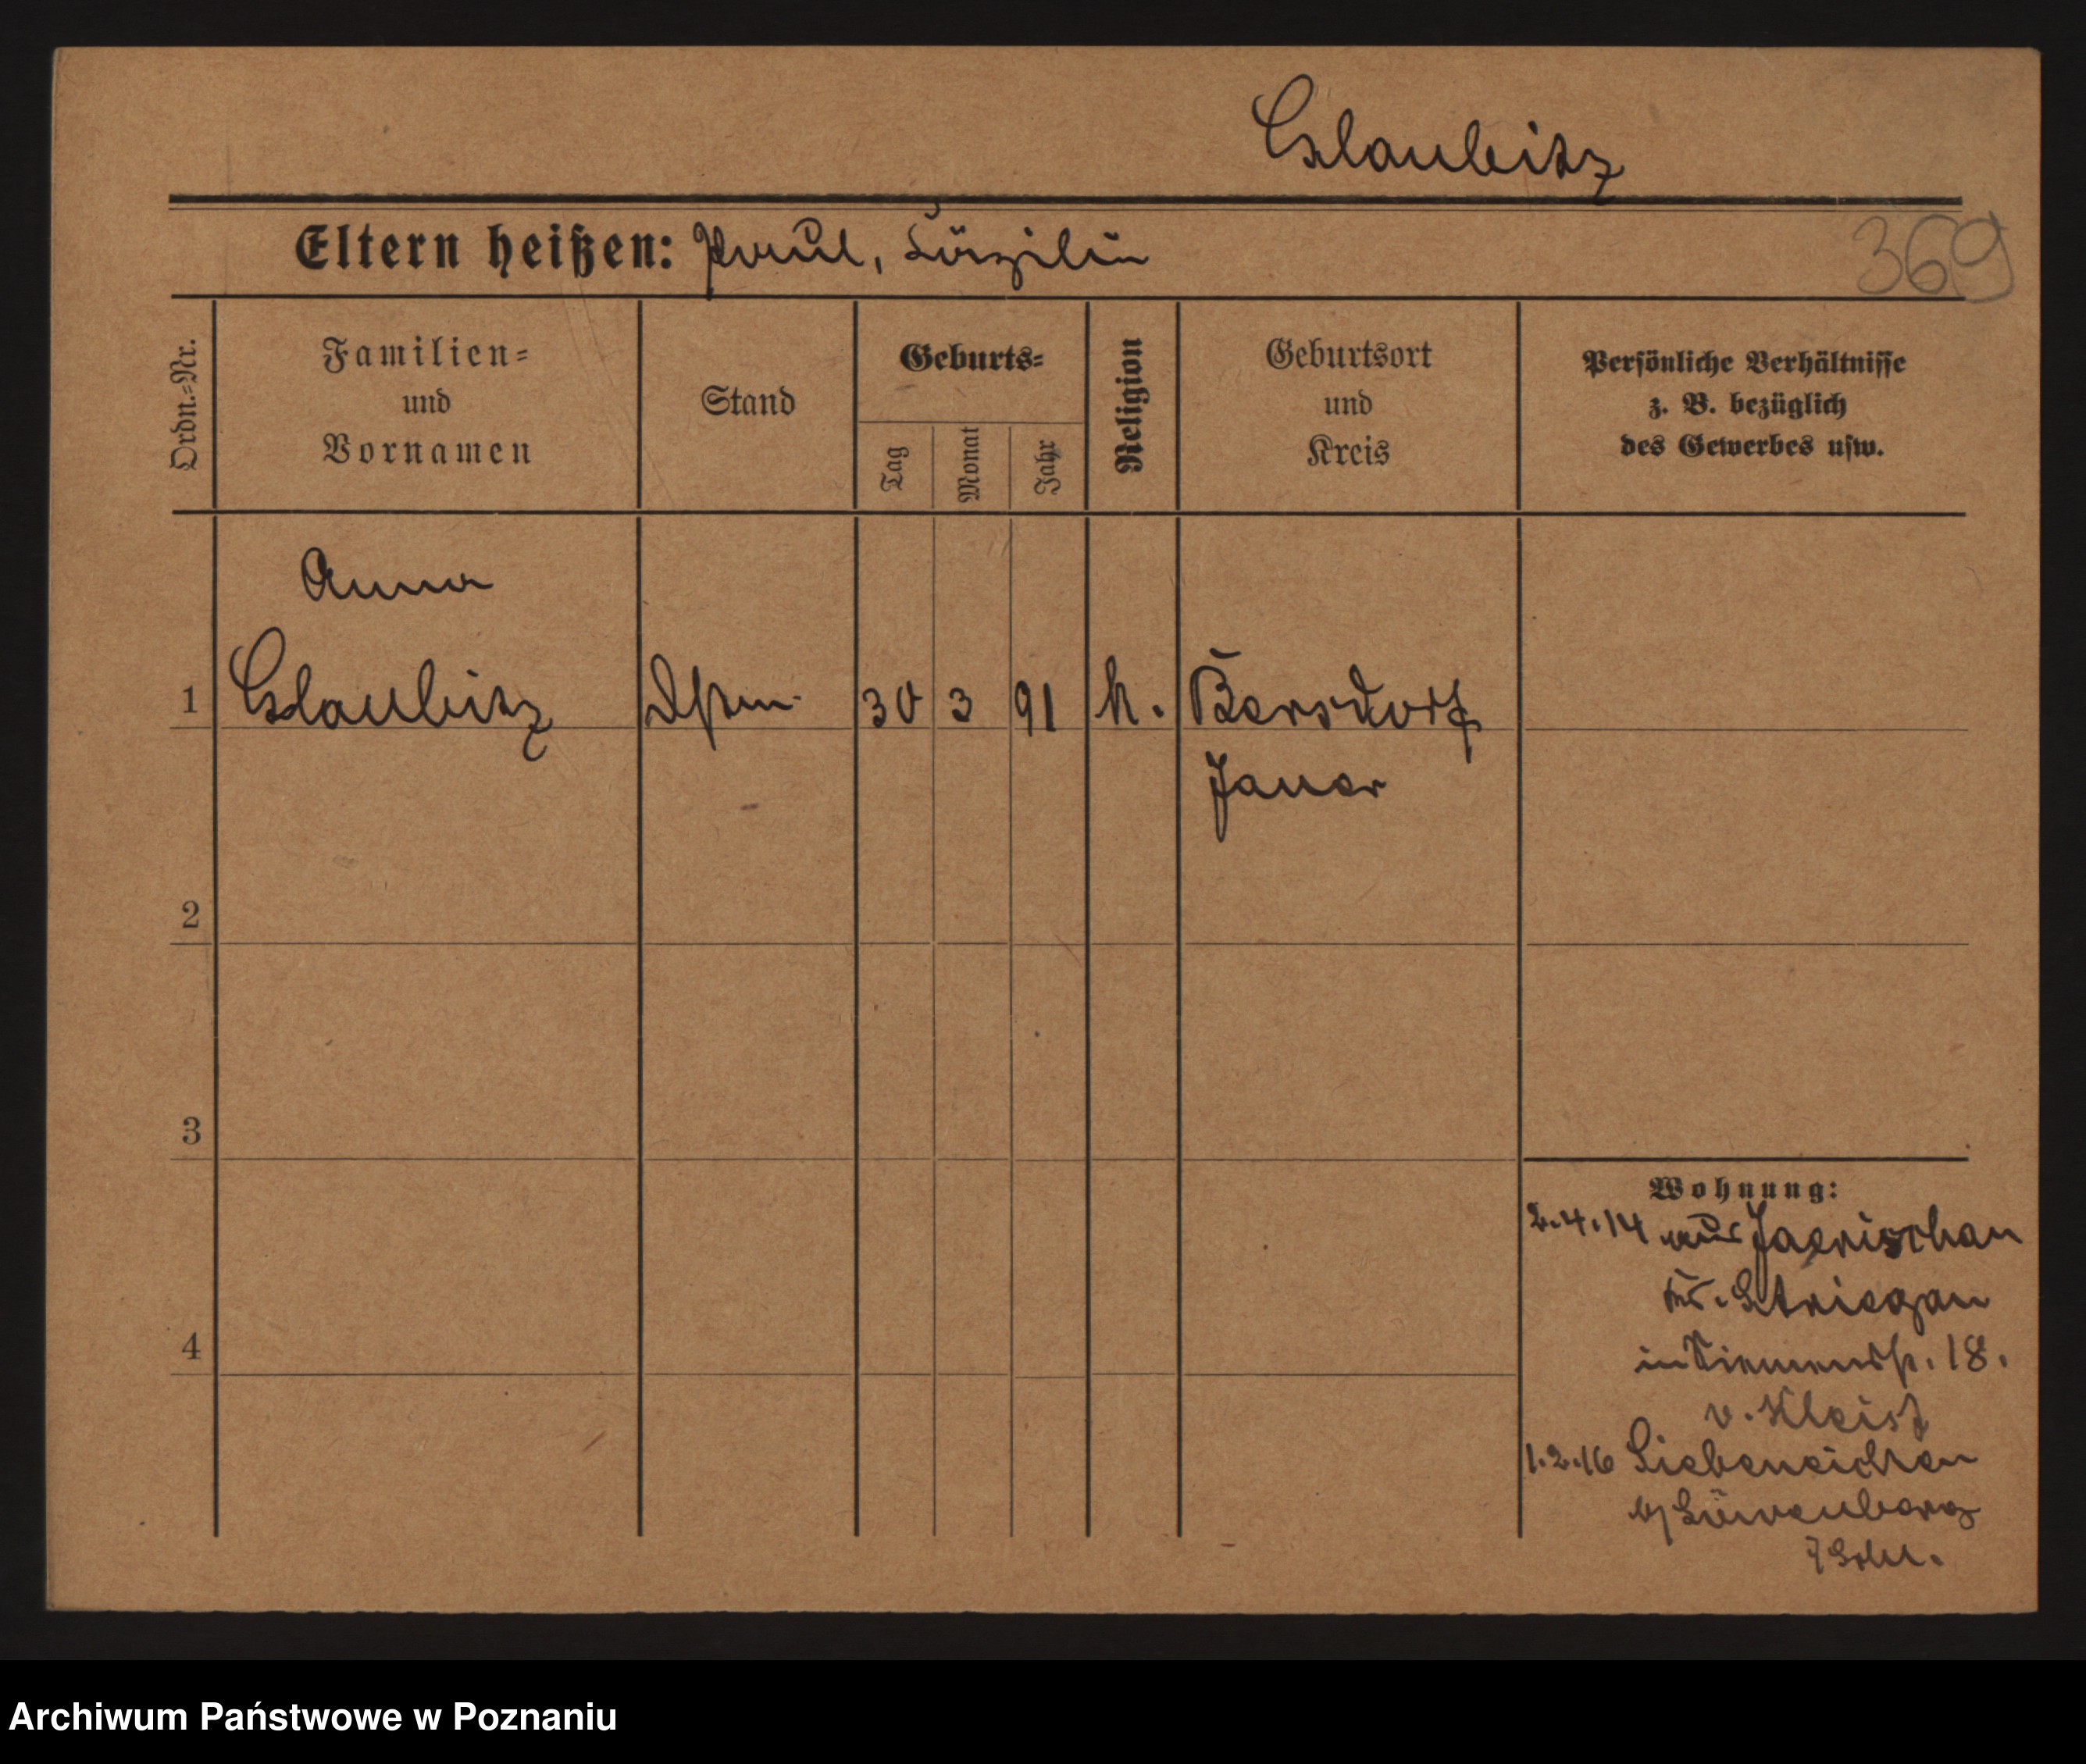 Glaubitz
Eltern heißen: Paul,
369
Ordn.=Nr.
Familien=
und
Vornamen
Stand
Geburts=
Tag
Monat
Jahr
Religion
Geburtsort
und
Kreis
Persönliche Verhältnisse
z. B. bezüglich
des Gewerbes usw.
Anna
1 Glaubitz 30 3 91 k. Bersdorf
Jauer
2
3
4
Wohnung:
2.4.14 aus Jaerischau
Kr. Striegau
18.
v. Kleist
1.2.16 Siebeneichen
b/ Löwenberg
i/Schl.
Archiwum Państwowe w Poznaniu